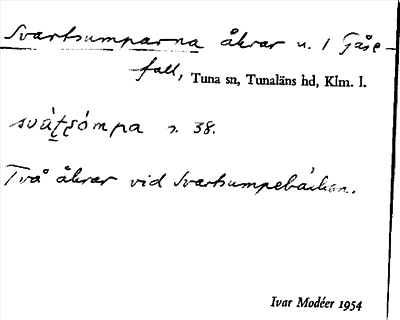 Svartsumparna åkrar u. 1 Gåse-
fall, Tuna sn, Tunaläns hd, Klm. l.
svàt̯ʂómpa s. 38.
Två åkrar vid Svartsumpebäcken.
Ivar Modéer 1954